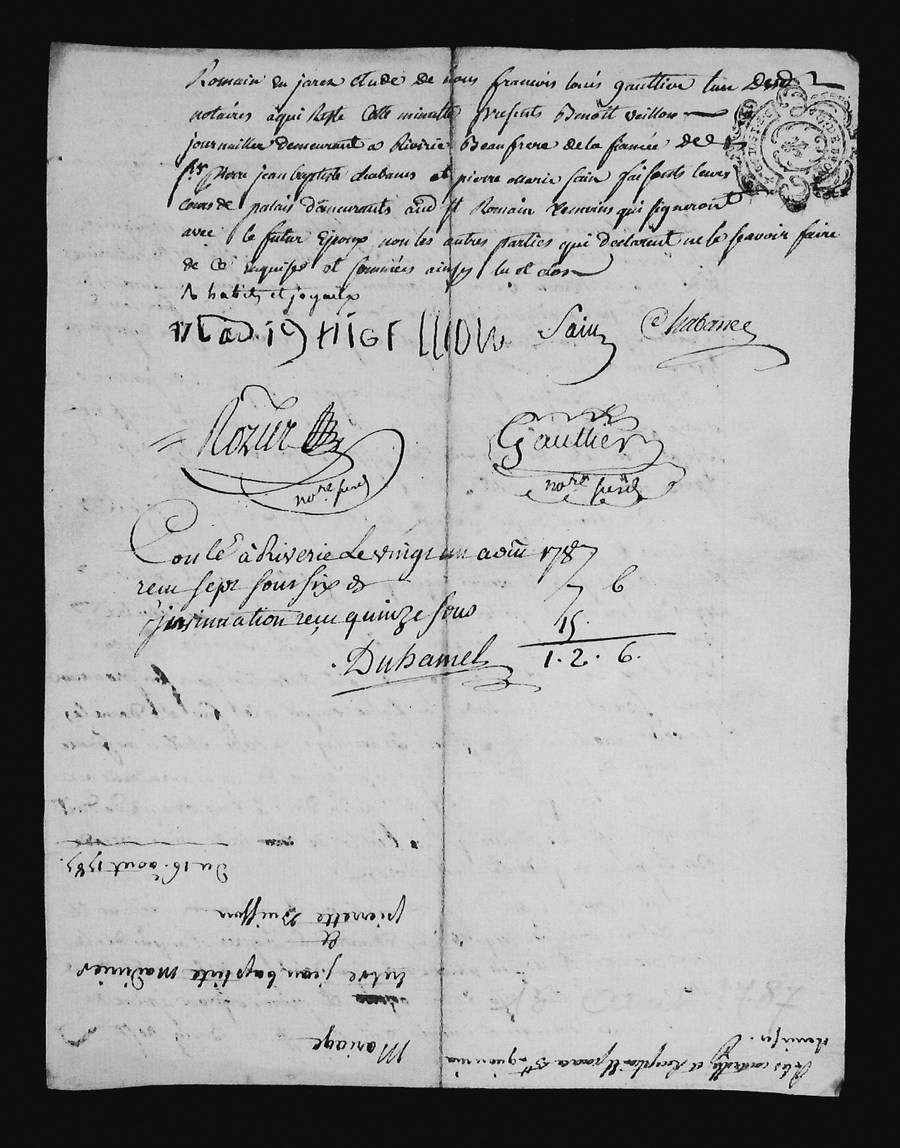 Romain en jarez etude de nous francois loüis gaultier l'un desd
notaires a qui reste cette minutte presents Benoît veillon
journaillier demeurant a Riverie Beaufrere de la fiancée de
Pierre jean baptiste chabanes et pierre marie sain faisants leurs
cours de palais demeurants aud st Romain temoins qui signeront
avec le futur Epoux non les autres parties qui declarent ne le scavoir faire
de ce enquises et sommées
habits et joyaux
Sain Chabanes
Nozier Gaultier
nore nore
Conlé a Riverie Le vingt un aoüt 1787
recu sept sous six d 7 6
insinuation reçu quinze sous 15.
Duhamel 1. 2. 6.
Mariage
Entre jean baptiste madinier
et
pierrette Buisson
Du 16. aout 1787.